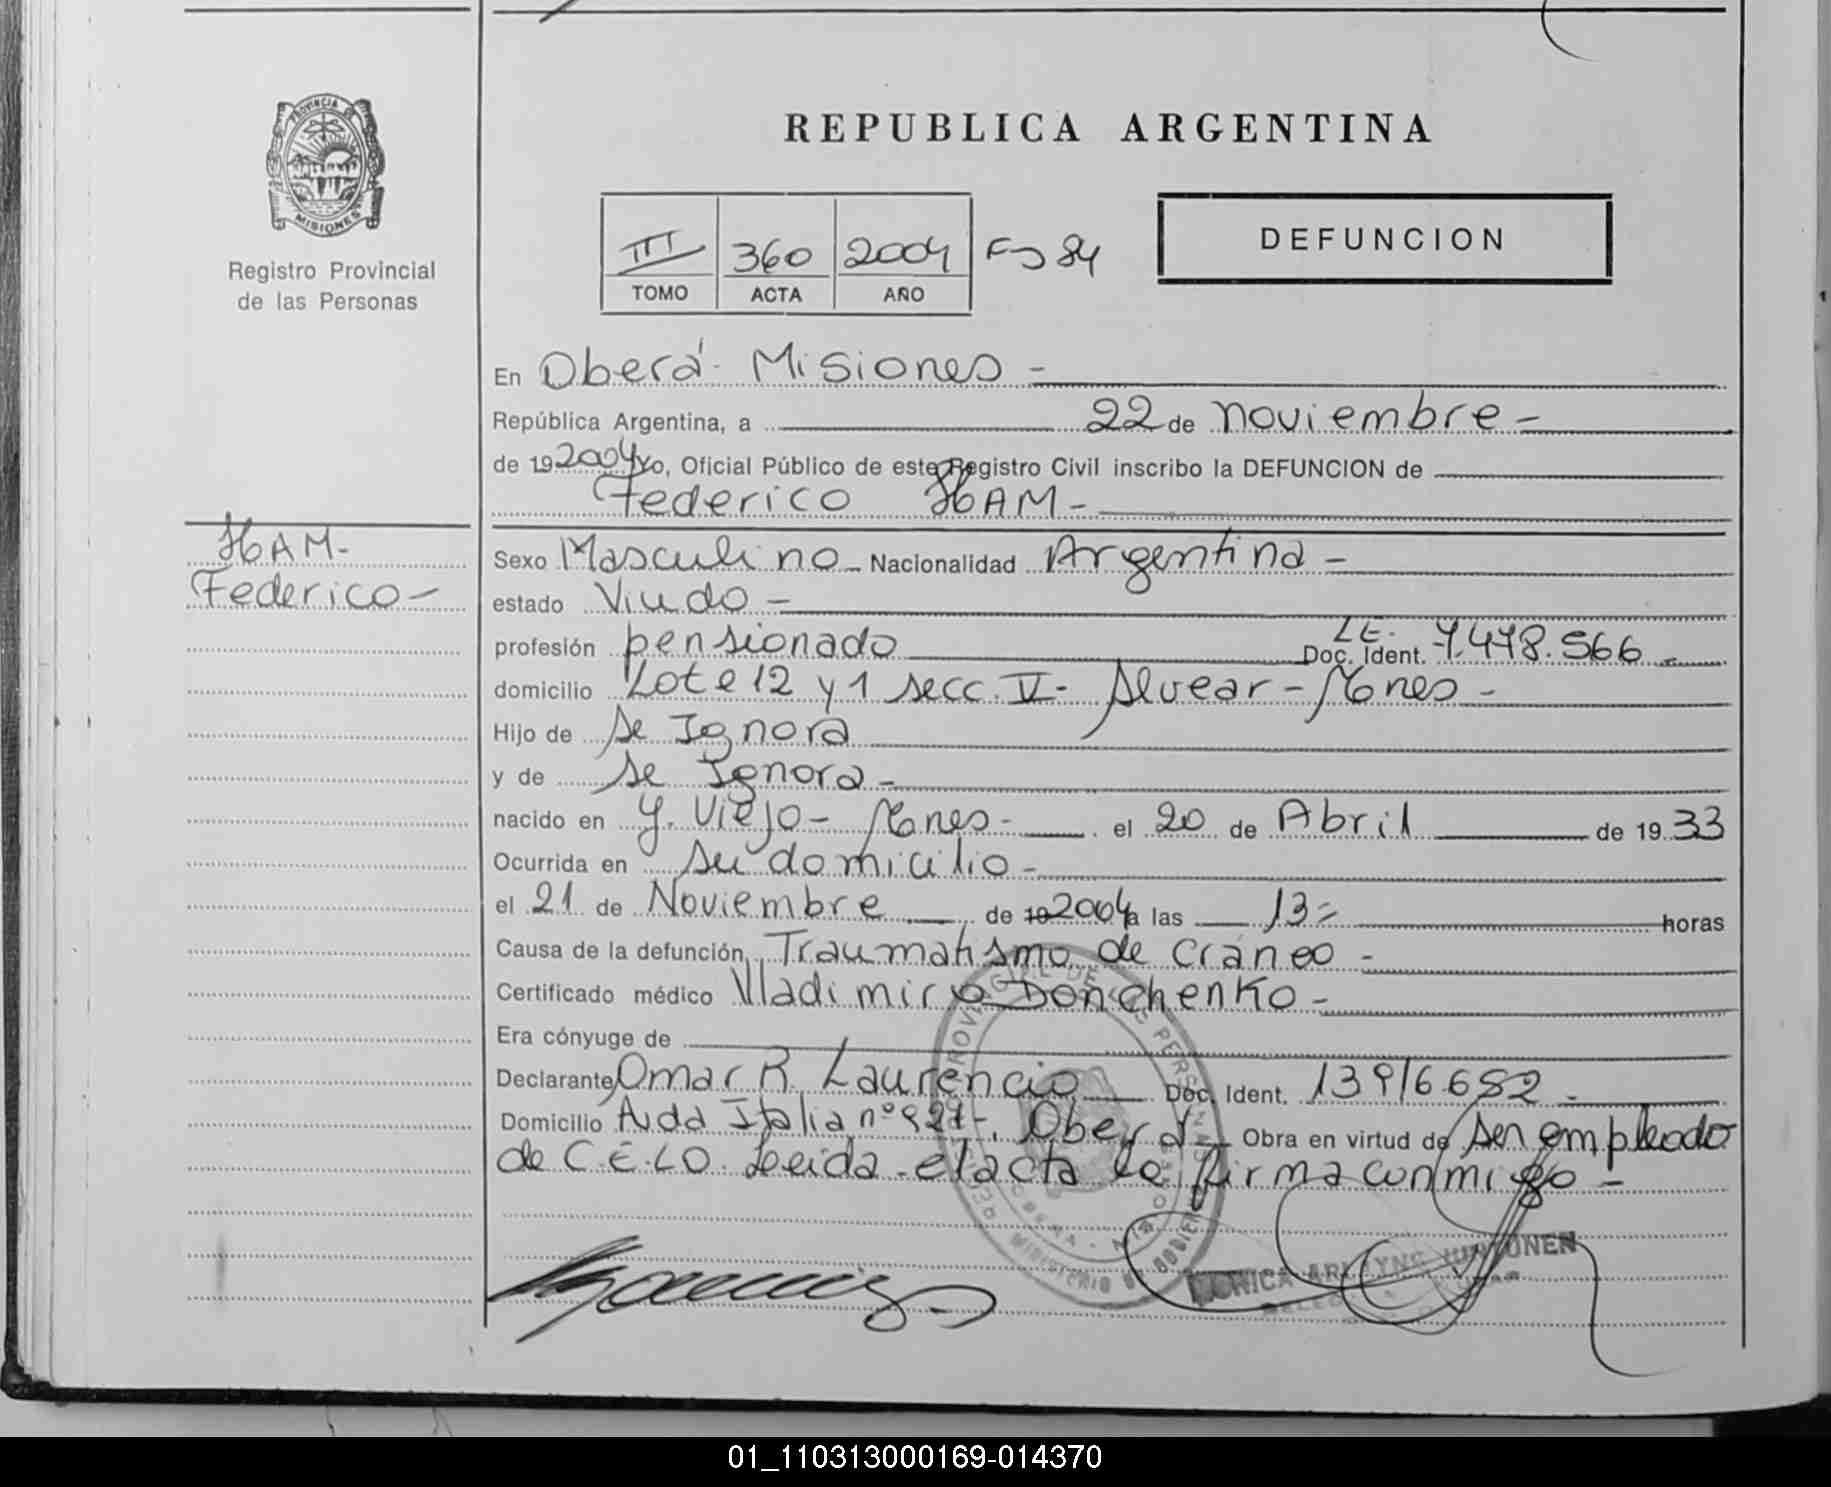 PROVINCIA DE
MISIONES
Registro Provincial
de las Personas
REPUBLICA ARGENTINA
III 360 2004 Fo 84
TOMO ACTA AÑO
DEFUNCION
En Oberá - Misiones -
República Argentina, a 22 de noviembre -
de 19 2004 Yo, Oficial Público de este Registro Civil inscribo la DEFUNCION de
Federico HAM -
HAM -
Federico -
Sexo Masculino - Nacionalidad Argentina -
estado Viudo -
profesión pensionado Doc. Ident. L.E. 7.478.566 -
domicilio Lote 12 y 1 secc. V - Alvear - Mnes -
Hijo de se Ignora
y de se Ignora -
nacido en Y. Viejo - Mnes - el 20 de Abril de 1933
Ocurrida en su domicilio -
el 21 de Noviembre de 19 2004 a las 13 = horas
Causa de la defunción Traumatismo de Cráneo -
Certificado médico Vladimiro Donchenko -
Era cónyuge de
Declarante Omar R. Laurencio Doc. Ident. 13916652 -
Domicilio Avda Italia nº 527 -, Oberá - Obra en virtud de ser empleado
de C.E.L.O. Leida el acta la firma conmigo -
MONICA JUNTONEN
01_110313000169-014370